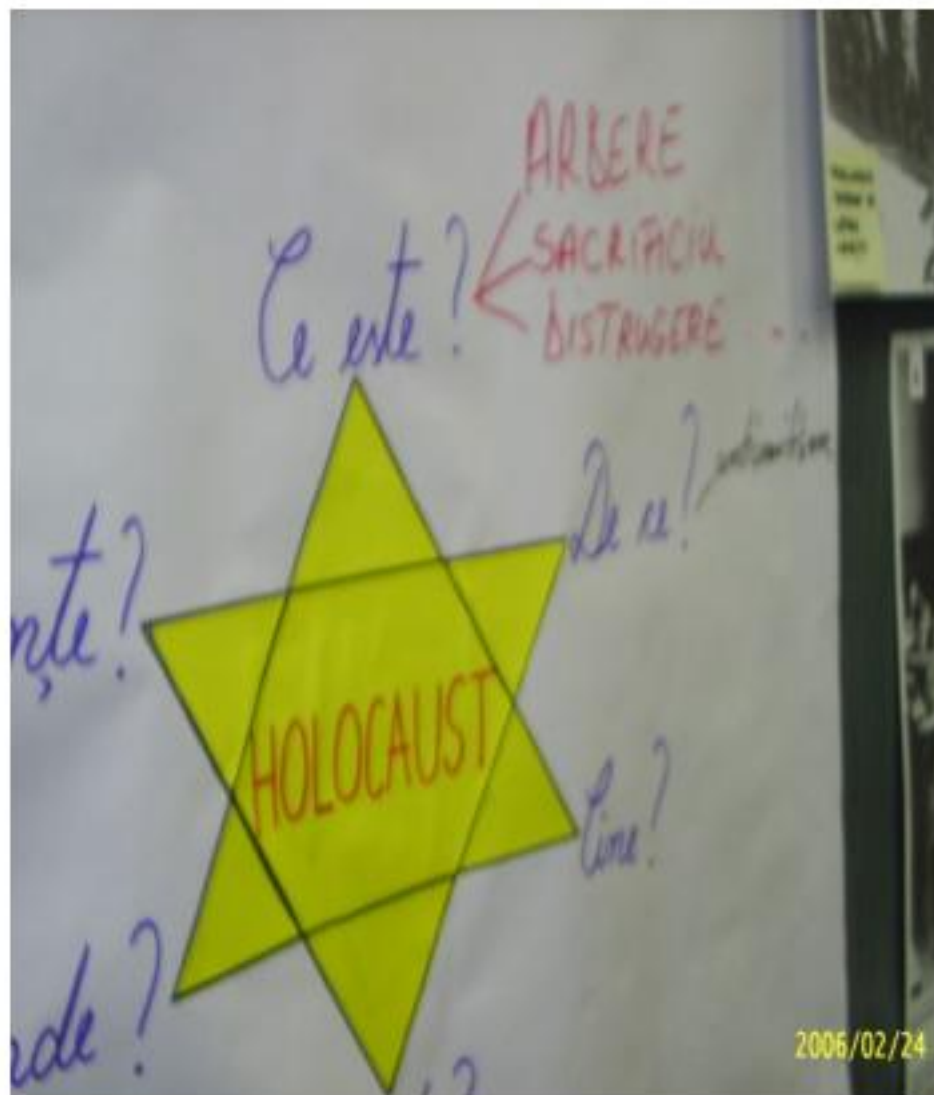 ARDERE
SACRIFICIU
Ce este?
DISTRUGERE ...
De ce?
nțe?
HOLOCAUST
Cine?
nde?
?
2006/02/24